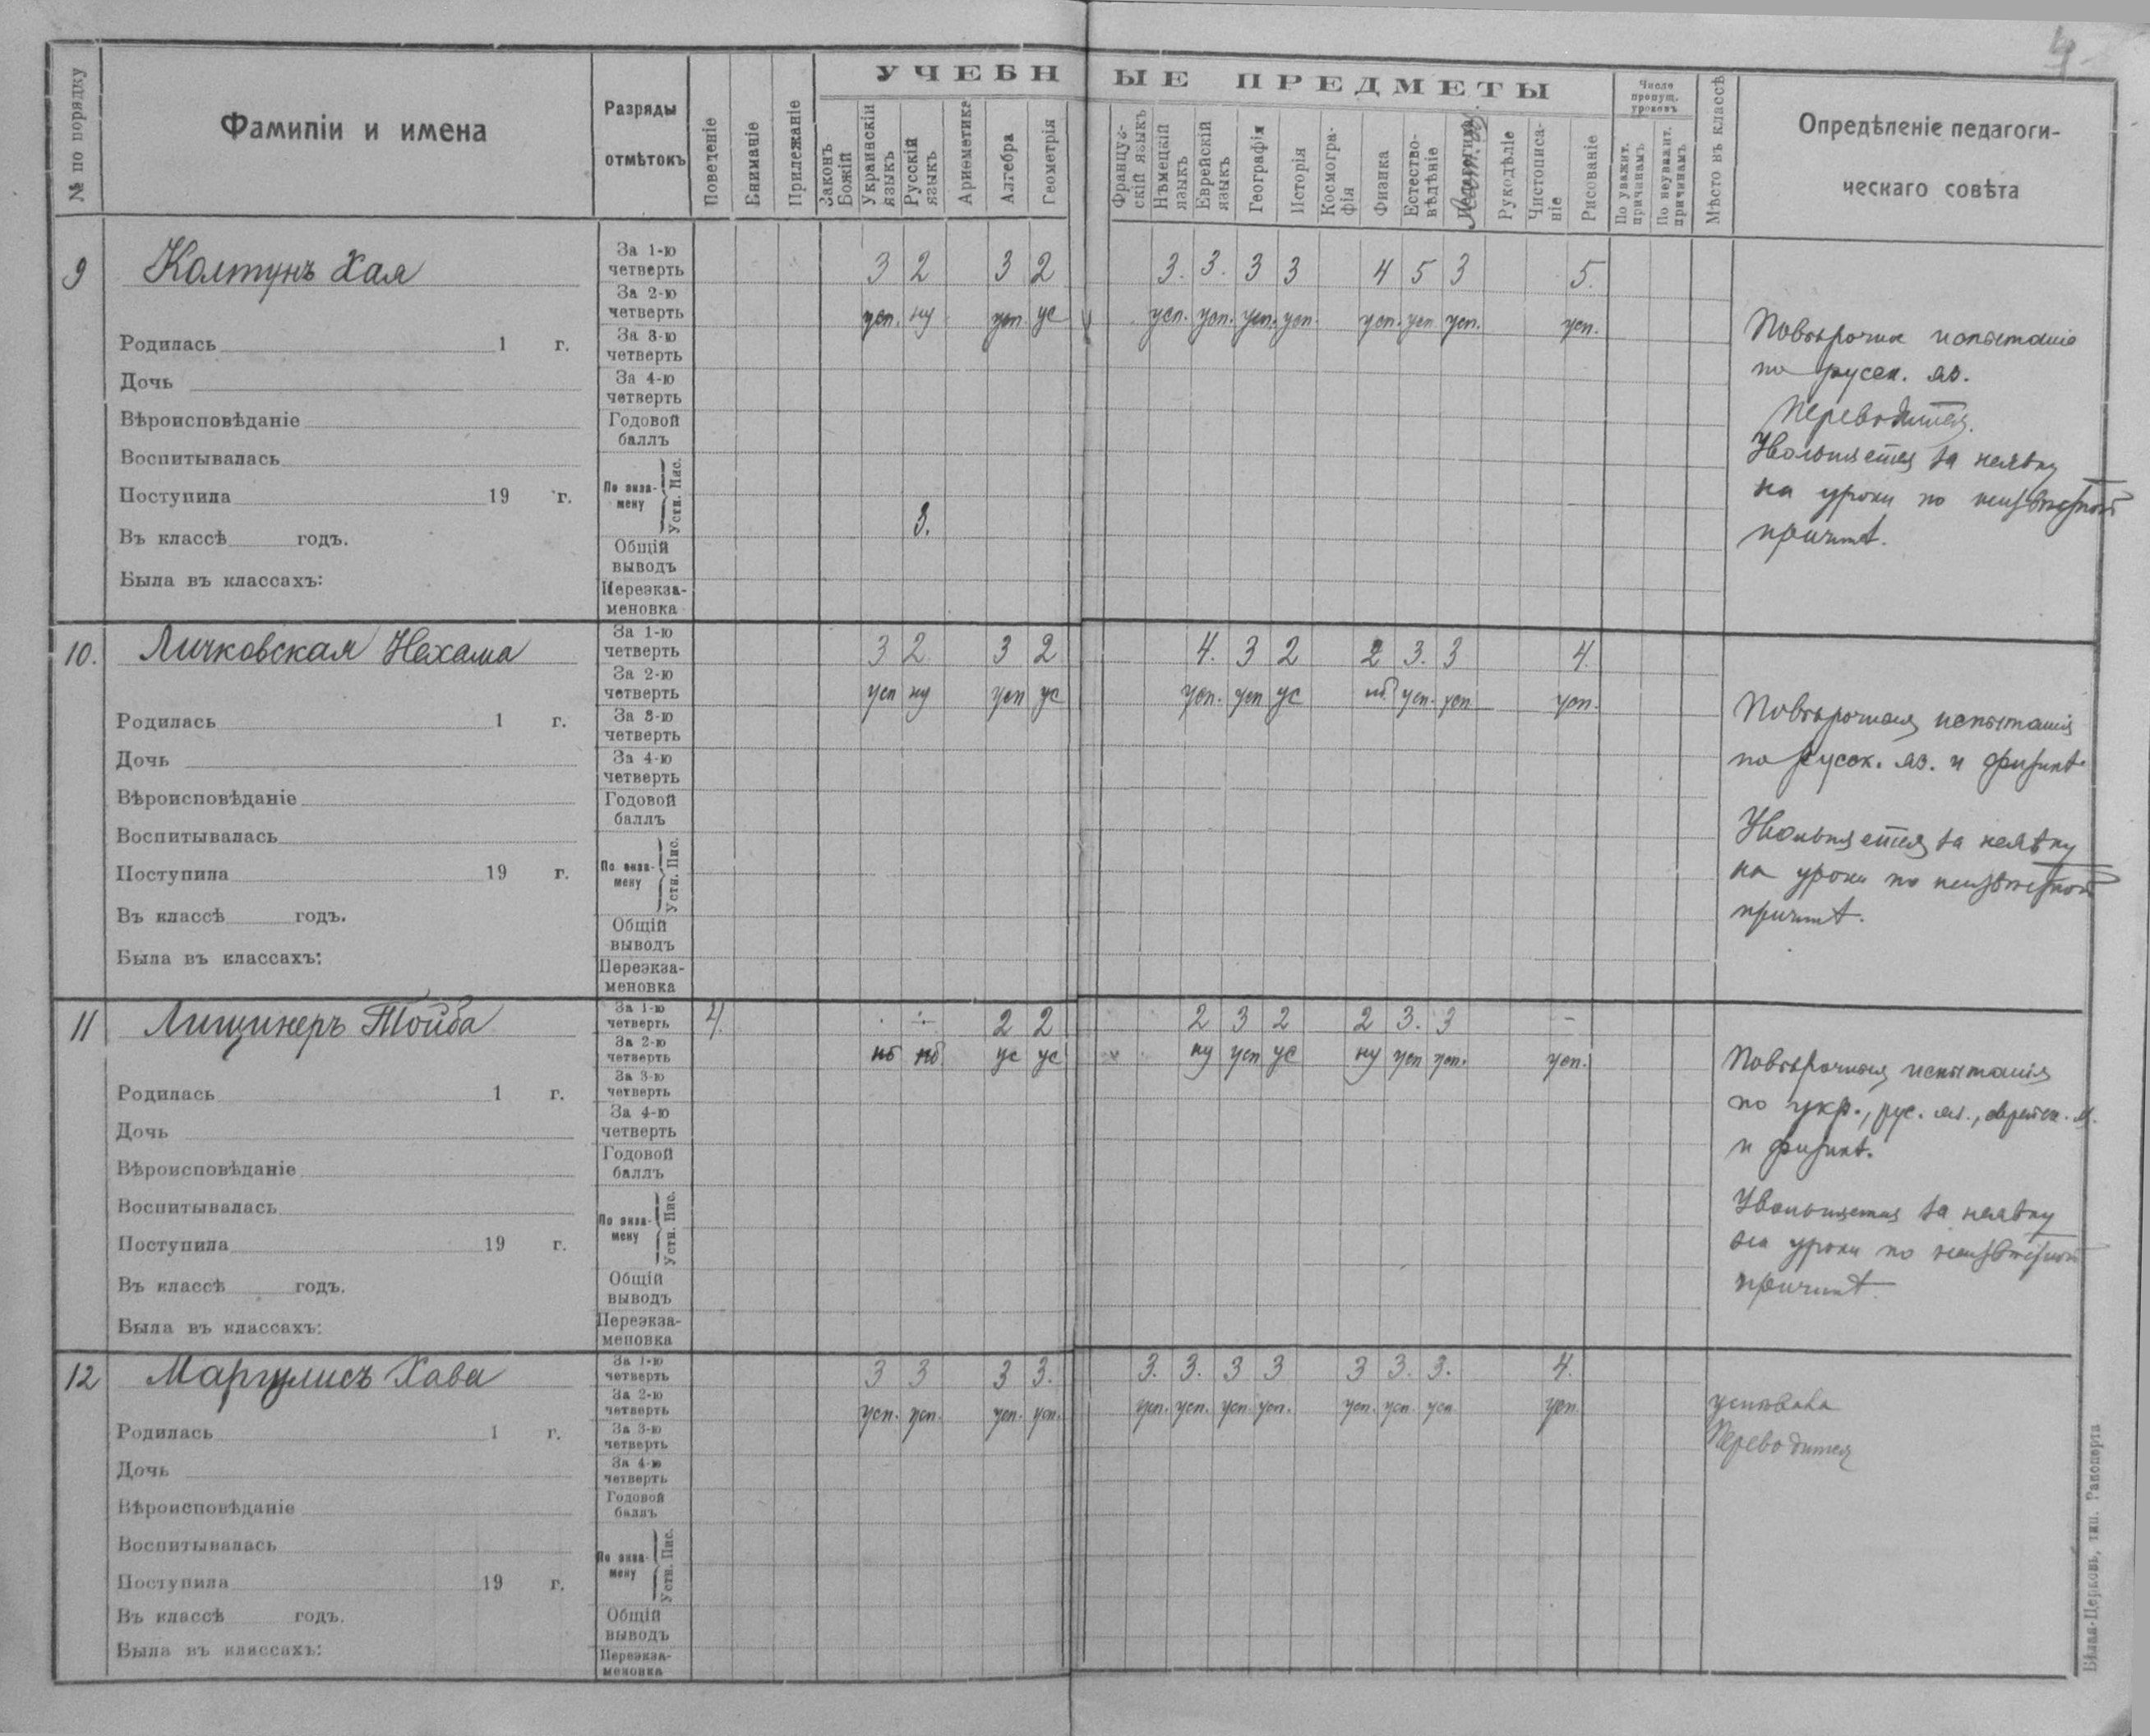 4
№ по порядку
Фамиліи и имена
Разряды отмѣтокъ
Поведеніе
Вниманіе
Прилежаніе
УЧЕБНЫЕ ПРЕДМЕТЫ
Законъ Божій
Украинскій языкъ
Русскій языкъ
Ариѳметика
Алгебра
Геометрія
Француз-скій языкъ
Нѣмецкій языкъ
Еврейскій языкъ
Географія
Исторія
Космогра-фія
Физика
Естество-вѣдѣніе
Педагогика
Рукодѣліе
Чистописа-ніе
Рисованіе
Число пропущ. уроковъ
По уважит. причинамъ
По неуважит. причинамъ
Мѣсто въ классѣ
Опредѣленіе педагоги-
ческаго совѣта
9 Колтунъ Хая
За 1-ю четверть 3 2 3 2 3. 3. 3 3 4 5 3 5.
За 2-ю четверть усп. ну усп. ус усп. усп. усп. усп. усп. усп усп. усп.
Родилась 1 г.
За 3-ю четверть
Дочь
За 4-ю четверть
Вѣроисповѣданіе
Годовой баллъ
Воспитывалась
Поступила 19 г.
По экза-мену Устн. Пис.
3.
Въ классѣ годъ.
Общій выводъ
Была въ классахъ:
Переэкза-меновка
испытаніе
по русск. яз.
Переводится.
Увольняется за неявку
на уроки по неизвѣстной
причинѣ.
10. Личковская Нехама
За 1-ю четверть 3 2 3 2 4. 3 2 2 3. 3 4.
За 2-ю четверть усп ну усп ус усп. усп ус нб усп. усп усп.
Родилась 1 г.
За 3-ю четверть
Дочь
За 4-ю четверть
Вѣроисповѣданіе
Годовой баллъ
Воспитывалась
Поступила 19 г.
По экза-мену Устн. Пис.
Въ классѣ годъ.
Общій выводъ
Была въ классахъ:
Переэкза-меновка
Повѣрочныя испытанія
по русск. яз. и физикѣ
Увольняется за неявку
на уроки по неизвѣстной
причинѣ.
11 Лищинеръ Тойба
За 1-ю четверть 4. 2 2 2 3 2 2 3. 3 –
За 2-ю четверть нб нб. ус ус ну усп ус ну усп усп. усп.
Родилась 1 г.
За 3-ю четверть
Дочь
За 4-ю четверть
Вѣроисповѣданіе
Годовой баллъ
Воспитывалась
Поступила 19 г.
По экза-мену Устн. Пис.
Въ классѣ годъ.
Общій выводъ
Была въ классахъ:
Переэкза-меновка
Повѣрочныя испытанія
по укр., рус. яз., еврейск. я.
и физикѣ.
Увольняется за неявку
на уроки по неизвѣстной
причинѣ.
12 Маргулисъ Хава
За 1-ю четверть 3 3 3 3. 3. 3. 3 3 3 3. 3. 4.
За 2-ю четверть усп. усп. усп. усп. усп. усп. усп. усп. усп. усп. усп усп.
Родилась 1 г.
За 3-ю четверть
Дочь
За 4-ю четверть
Вѣроисповѣданіе
Годовой баллъ
Воспитывалась
Поступила 19 г.
По экза-мену Устн. Пис.
Въ классѣ годъ.
Общій выводъ
Была въ классахъ:
Переэкза-меновка
успѣвала
Переводится
Бѣлая-Церковь, тип. Рапопорта